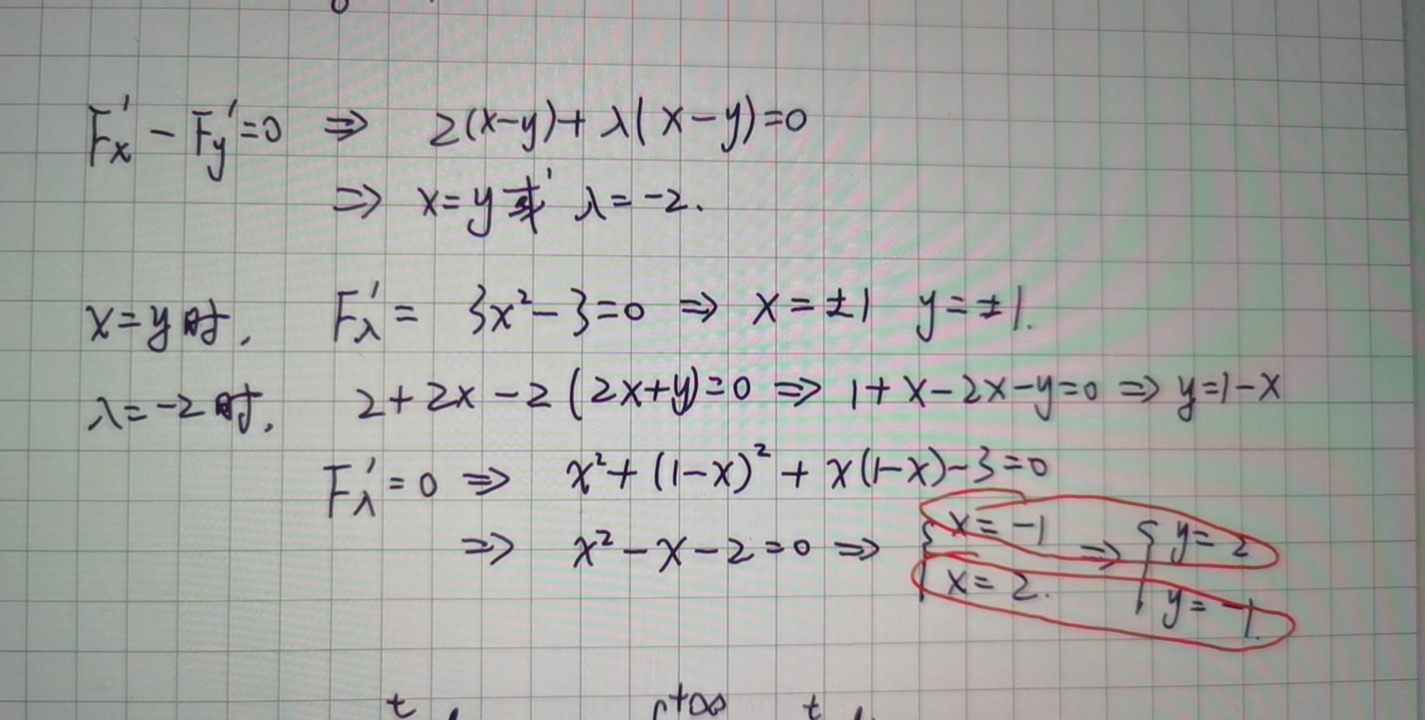 F'x - F'y = 0 ⇒ 2(x-y)+λ(x-y)=0
⇒ x=y 或 λ=-2.
x=y时, F'λ = 3x²-3=0 ⇒ x=±1 y=±1.
λ=-2时, 2+2x-2(2x+y)=0 ⇒ 1+x-2x-y=0 ⇒ y=1-x
F'λ=0 ⇒ x²+(1-x)²+x(1-x)-3=0
⇒ x²-x-2=0 ⇒ { x=-1 ⇒ { y=2
x=2. y=-1.
t +∞ t